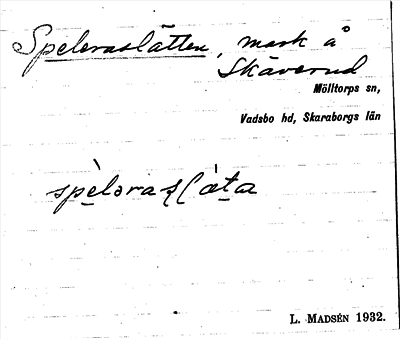 Speleraslätten, mark å
Skäverud
Mölltorps sn,
Vadsbo hd, Skaraborgs län
L. MADSÉN 1932.